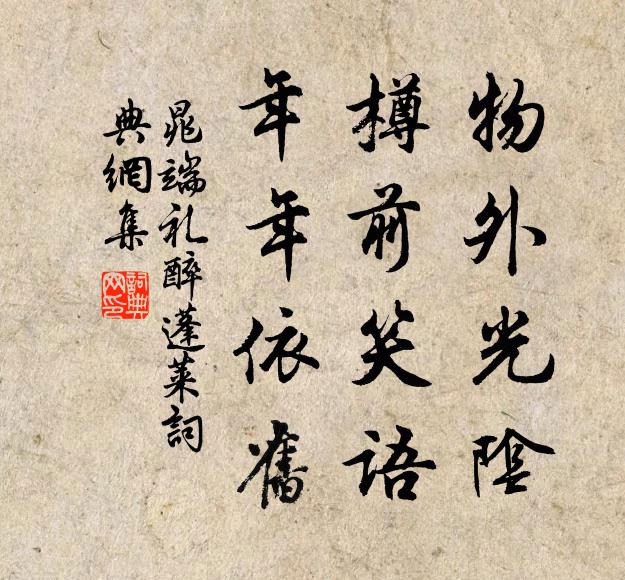 物外光陰
樽前笑語
年年依舊
晁端礼醉蓬萊詞
典網集
詞典网印